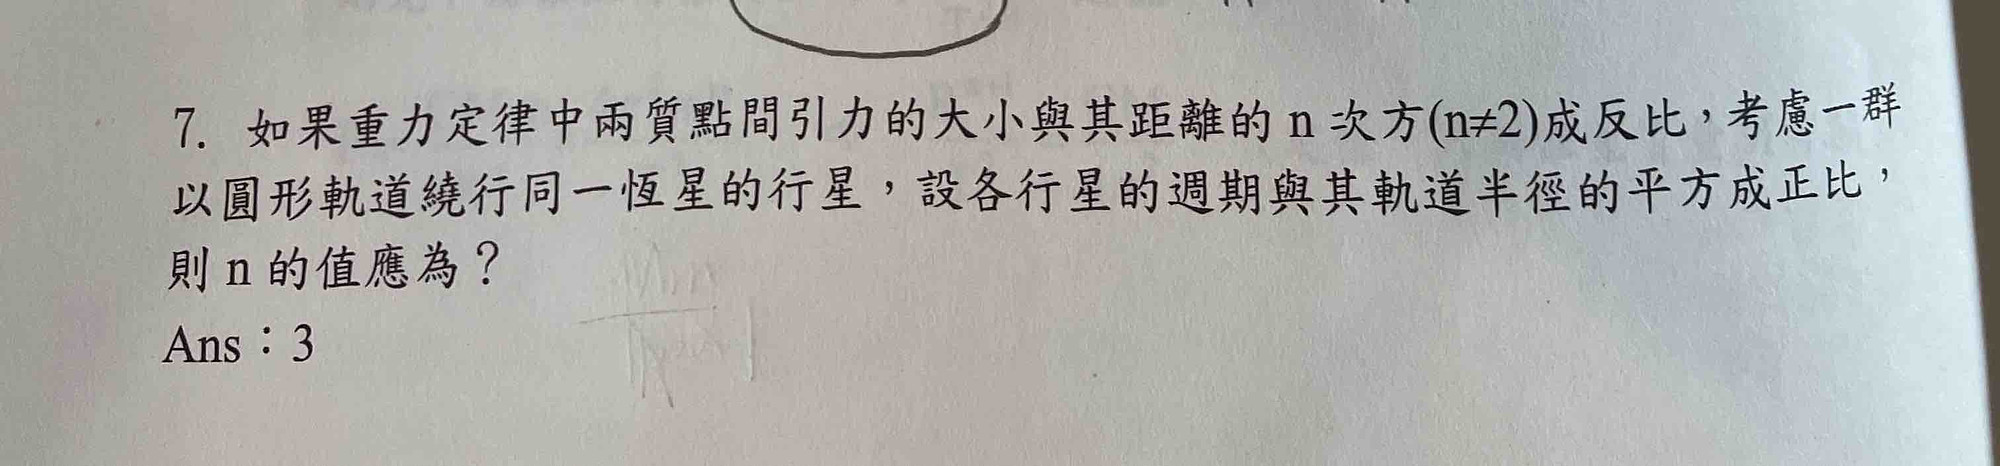 7. 如果重力定律中兩質點間引力的大小與其距離的 n 次方(n≠2)成反比，考慮一群
以圓形軌道繞行同一恆星的行星，設各行星的週期與其軌道半徑的平方成正比，
則 n 的值應為？
Ans：3